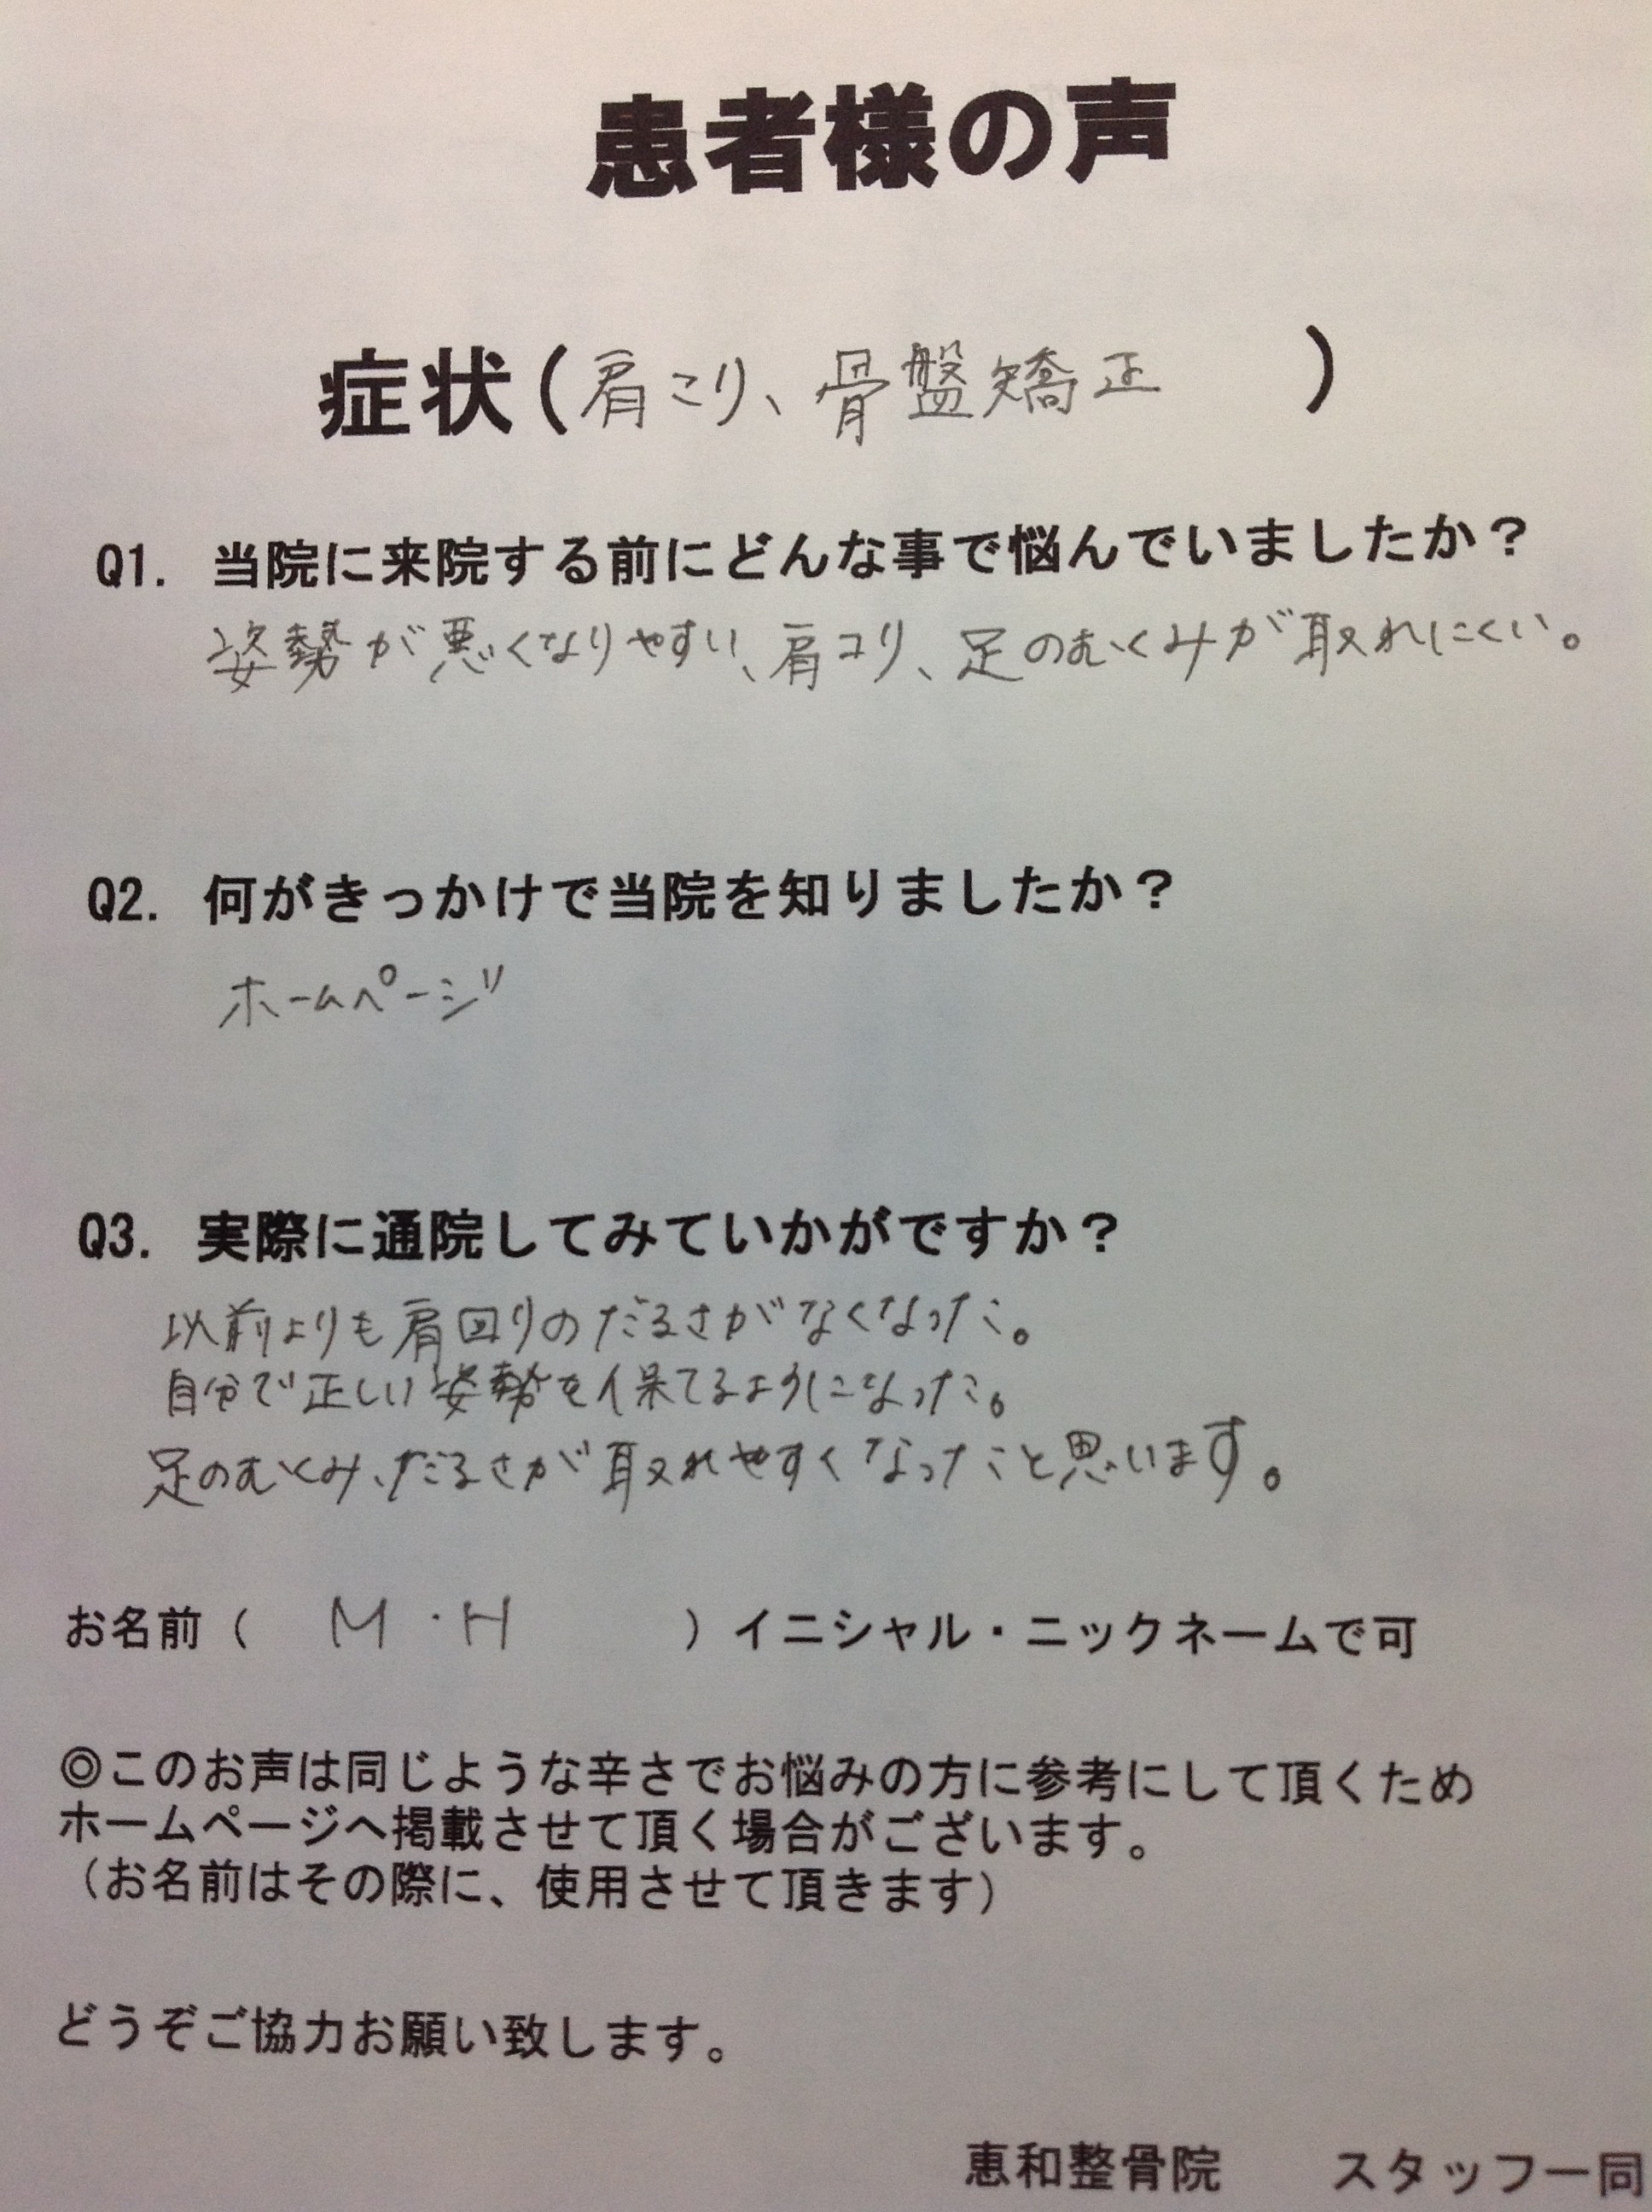 患者様の声
症状(肩こり、骨盤矯正)
Q1. 当院に来院する前にどんな事で悩んでいましたか？
姿勢が悪くなりやすい、肩コリ、足のむくみが取れにくい。
Q2. 何がきっかけで当院を知りましたか？
ホームページ
Q3. 実際に通院してみていかがですか？
以前よりも肩回りのだるさがなくなった。
自分で正しい姿勢を保てるようになった。
足のむくみ、だるさが取れやすくなったと思います。
お名前（ M・H ）イニシャル・ニックネームで可
◎このお声は同じような辛さでお悩みの方に参考にして頂くため
ホームページへ掲載させて頂く場合がございます。
（お名前はその際に、使用させて頂きます）
どうぞご協力お願い致します。
恵和整骨院 スタッフ一同